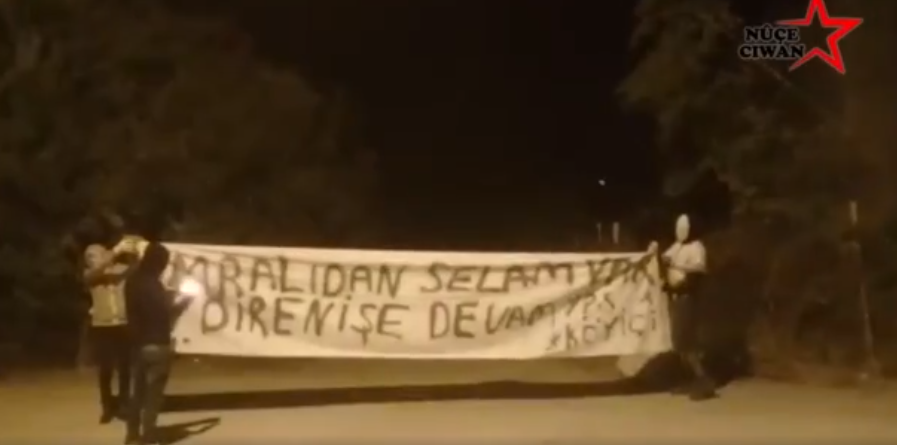 NÛÇE
CIWAN
MRALIDAN SELAM VAR
DIRENİŞE DEVAM YPS
KÖYİÇİ